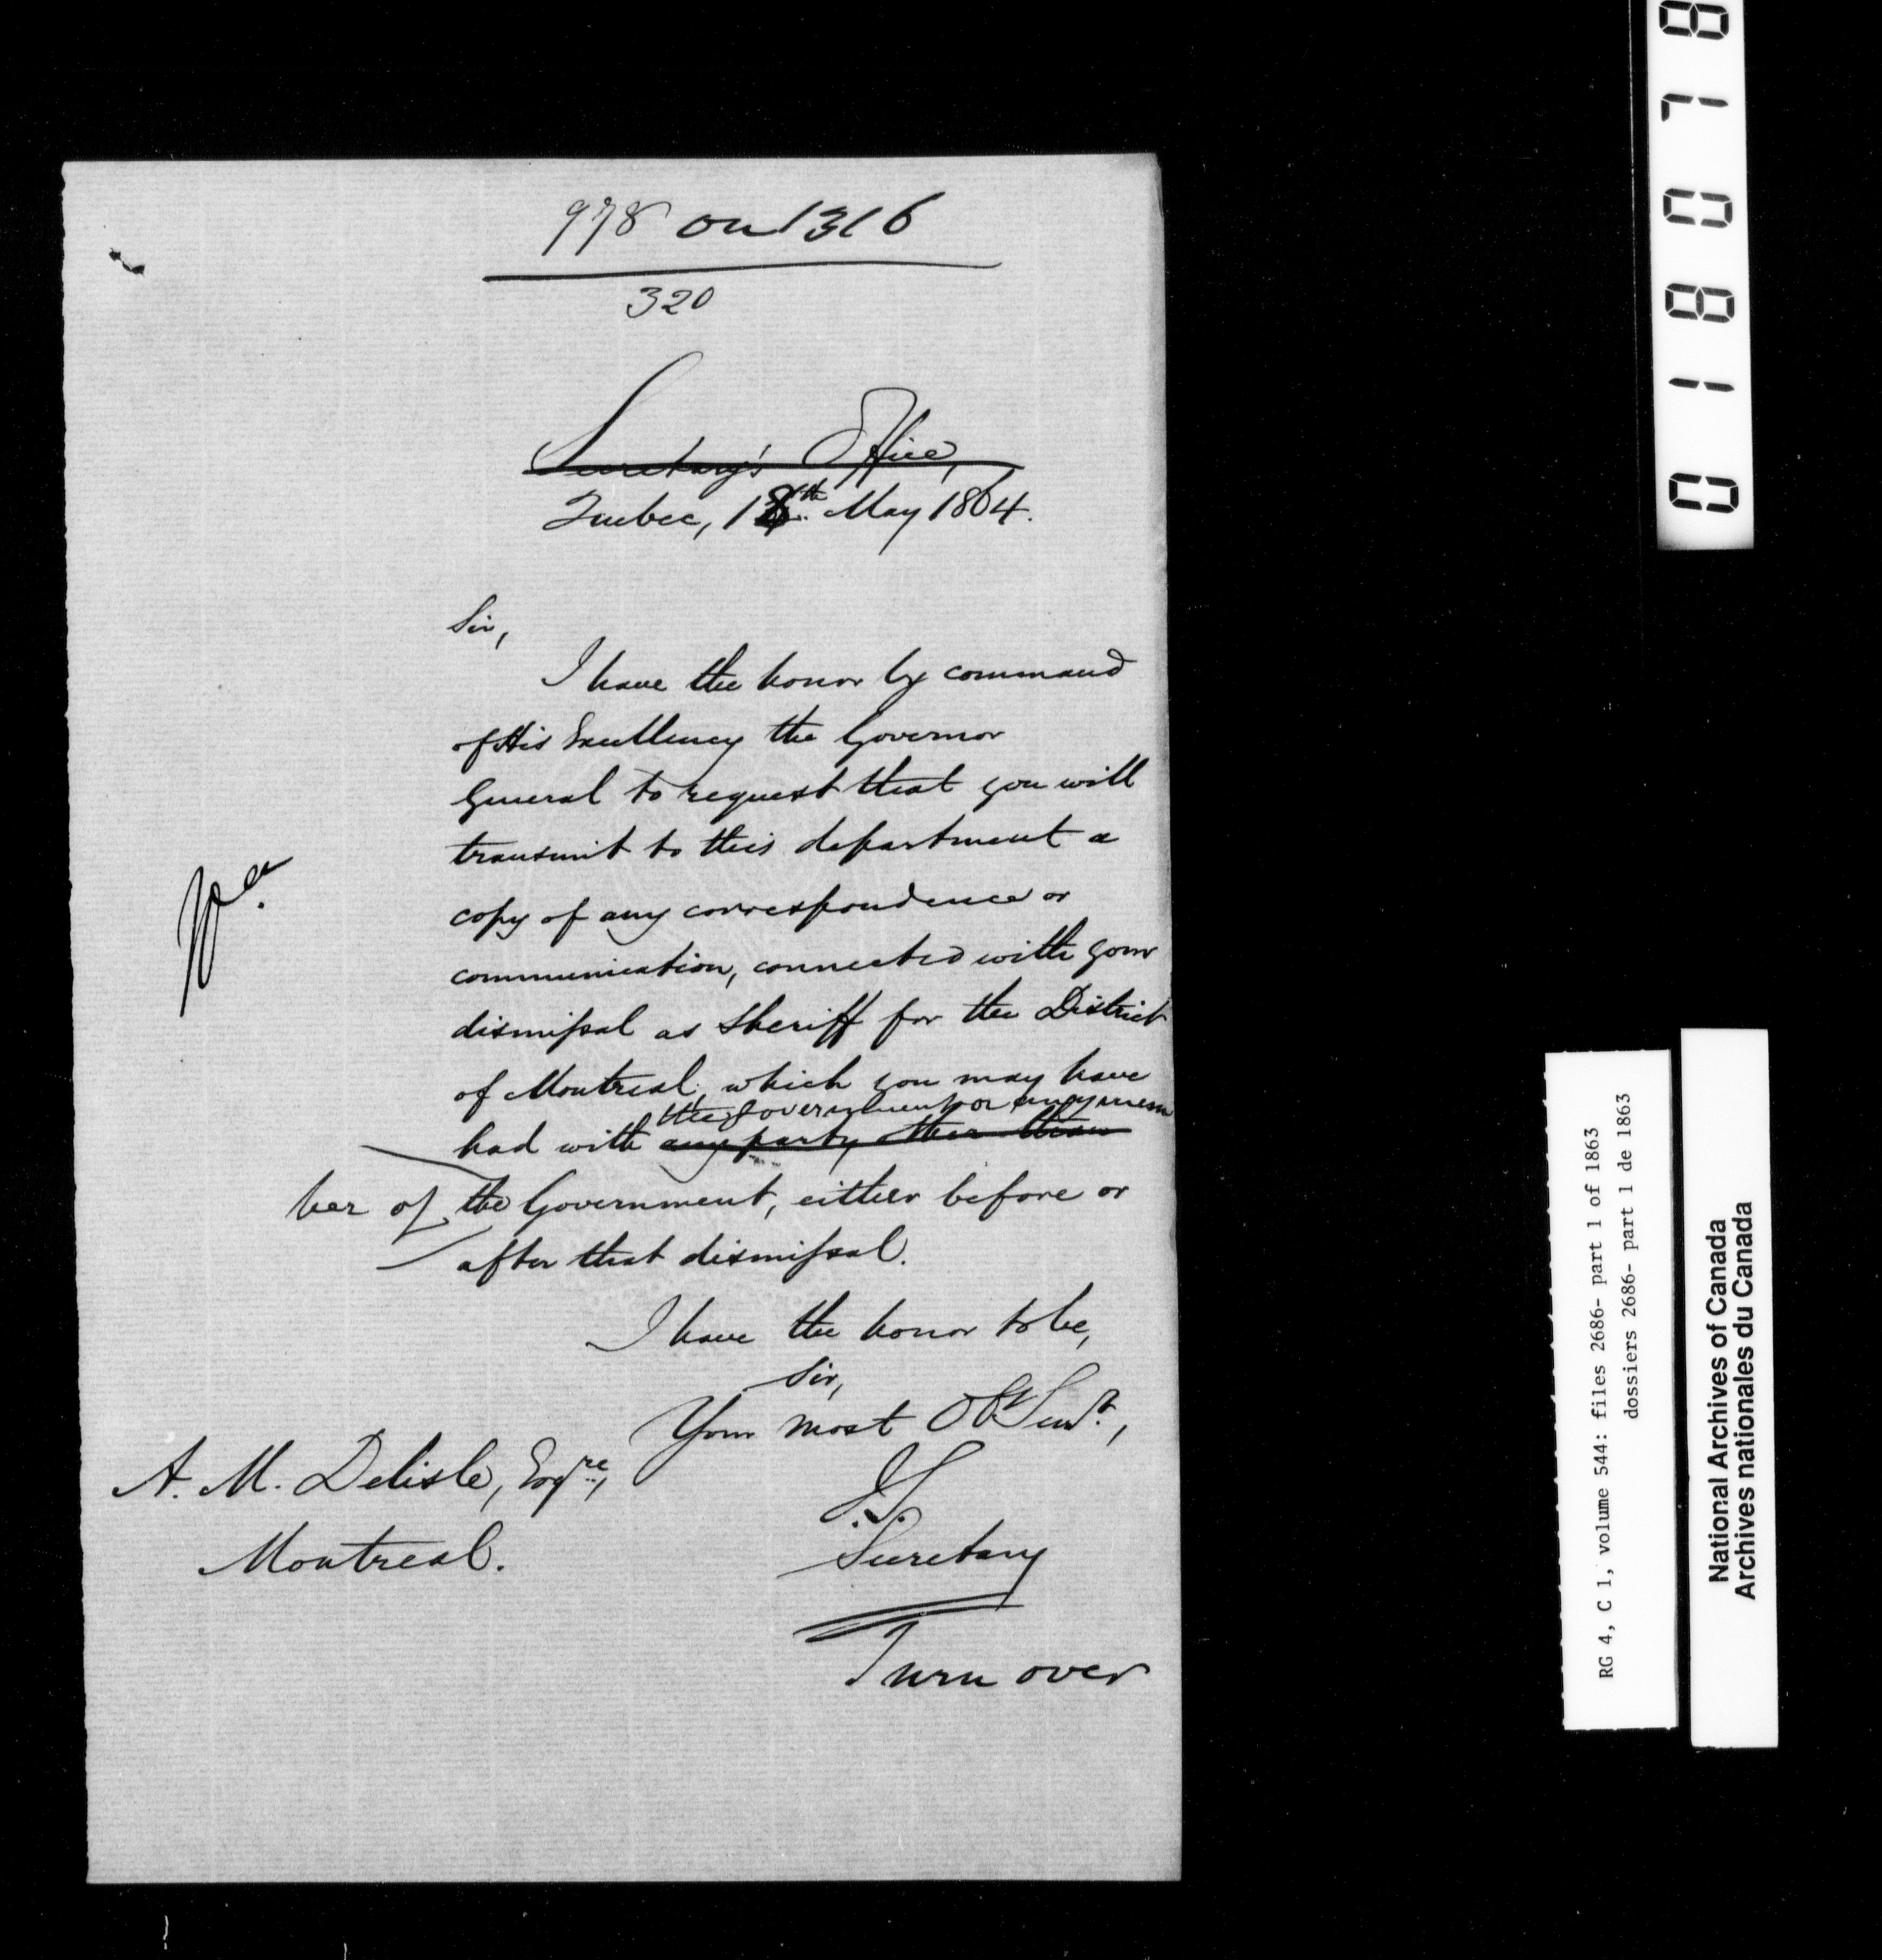 978 on 1316
320
Secretary's Office,
Quebec, 18th. May 1864.
Sir,
I have the honor by command
of His Excellency the Governor
General to request that you will
transmit to this department a
copy of any correspondence or
communication, connected with your
dismissal as Sheriff for the District
of Montreal, which you may have
the Government or any mem
had with any party other than
ber of the Government, either before or
after that dismissal.
I have the honor to be,
Sir,
Your most Obt Servt.,
A. M. Delisle, Esqre.,
Montreal.
Secretary
Turn over
018078
RG 4, C 1, volume 544: files 2686- part 1 of 1863
dossiers 2686- part 1 de 1863
National Archives of Canada
Archives nationales du Canada